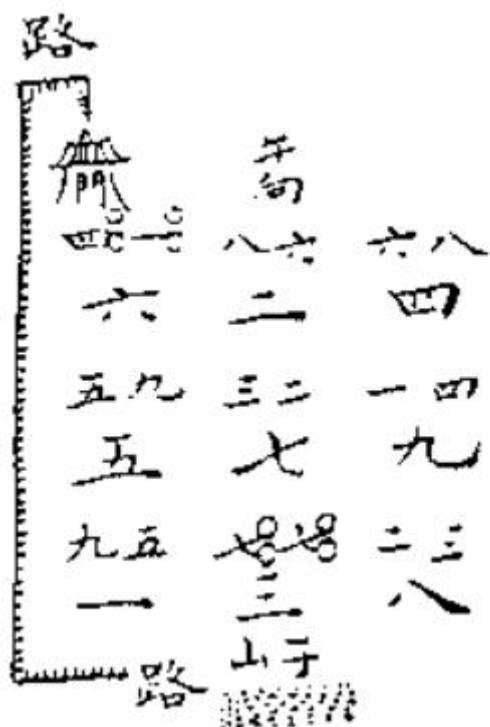 路
午
向
四一 八六 六八
六 二 四
五九 三二 一四
五 七 九
九五 七七 二三
一 三 八
山子
路